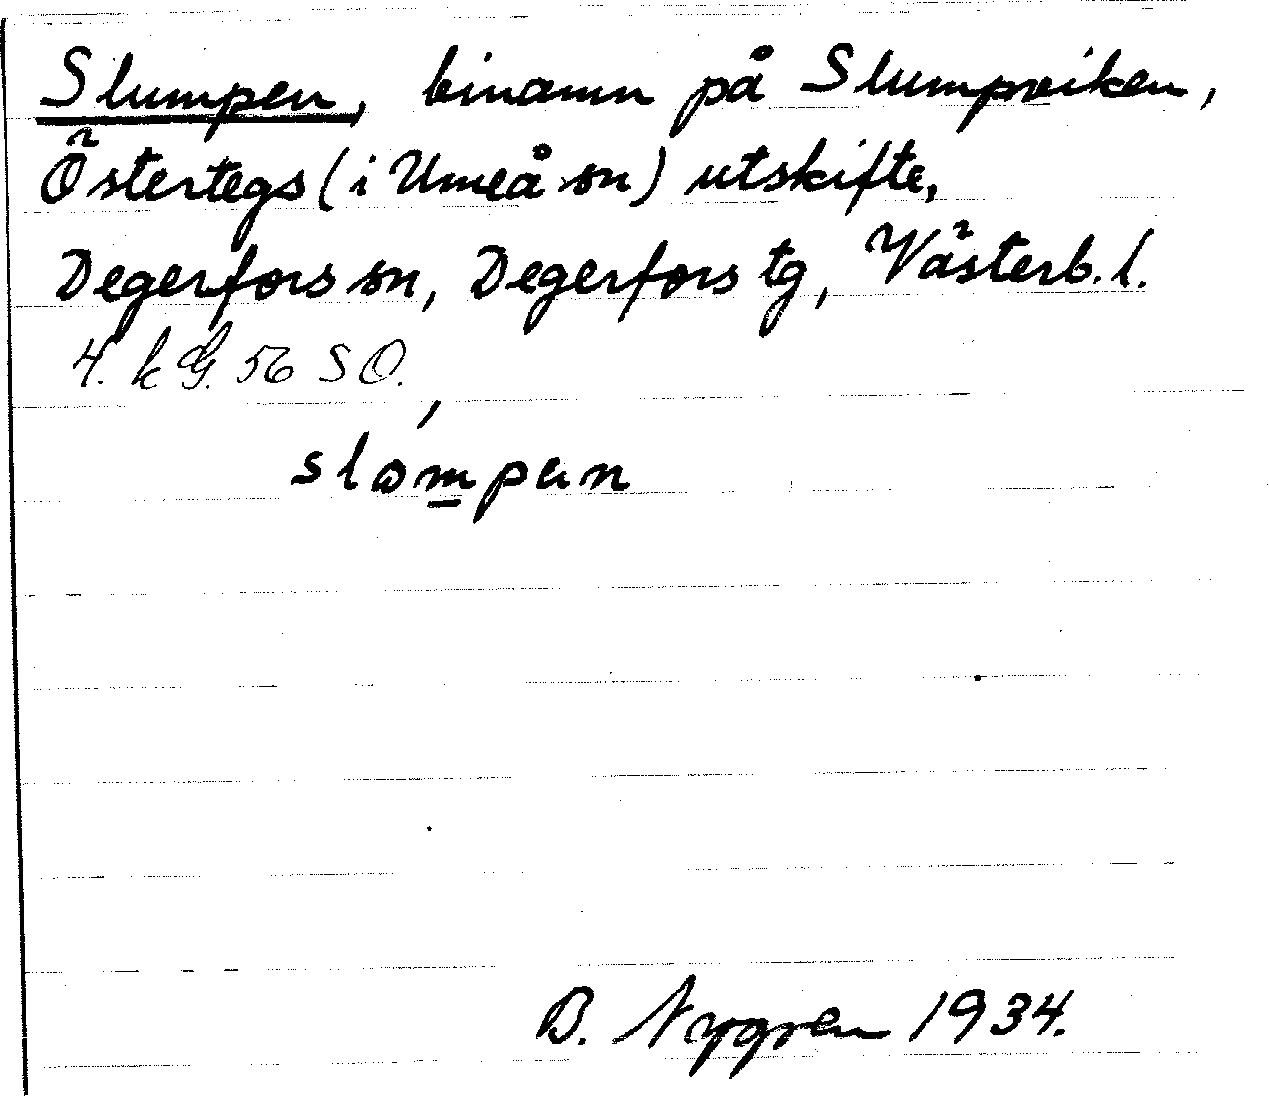 Slumpen, binamn på Slumpviken,
Östertegs (i Umeå sn) utskifte,
Degerfors sn, Degerfors tg, Västerb. l.
4. k G. 56 SO.
slåmpɐn
B. Nygren 1934.